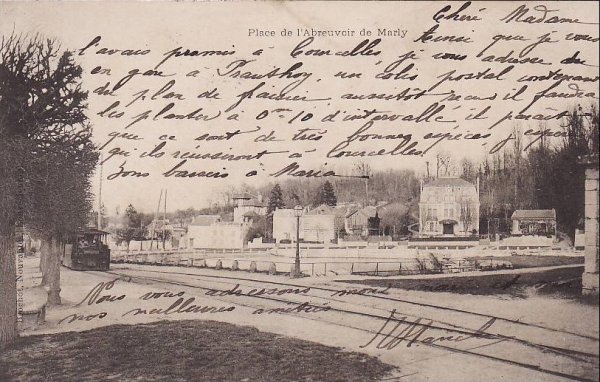 Place de l'Abreuvoir de Marly
Chère Madame
J'avais promis à Courcelles je vous adresse du
que je vous
en gare à Trauthoy, un colis postal contenant
du plan de fraisier, aussitôt reçu il faudra
les planter à 0m 10 d'intervalle il paraît
que ce sont de très bonnes espèces j'espère
qu'ils réussiront à Courcelles
Bons baisers à Maria
Nous vous adressons mes
nos meilleures amitiés
Blanche